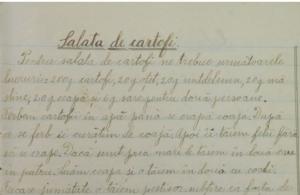 Salata de cartofi.
Pentru salata de cartofi ne trebue următoarele
lucruri: 200g cartofi, 20g oțet, 20g untdelemn, 20g mă
sline, 20g ceapă și 6g sare pentru două persoane.
Fierbem cartofii în apă până se crapă coaja. După
ce se ferb se curățim de coajă. Apoi îi tăiem felii fără
să se crape. Dacă sunt prea mari le tăiem în două ori
în patru. Luăm ceapa și o tăiem în două cu
jumătate o tăiem